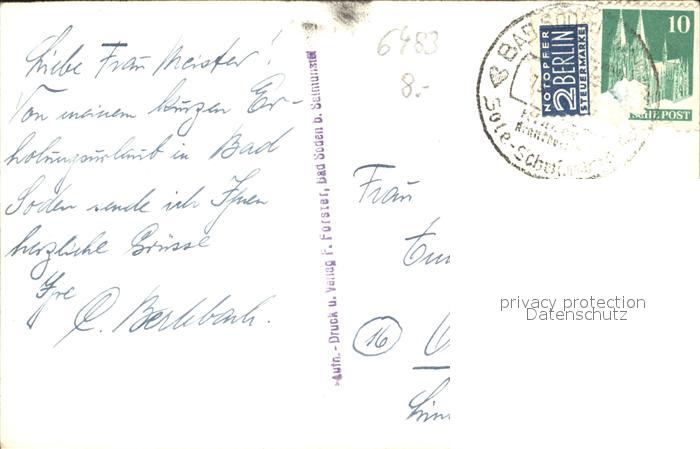 Liebe Frau Meister!
Von meinem kurzen Er-
holungsurlaub in Bad
Soden sende ich Ihnen
herzliche Grüsse
Ihre
C. Berlebach.
Aufn.-Druck u. Verlag F. Förster, Bad Soden b. Salmünster
6483
8.-
BAD SODEN
Sole-Schwimm
NOTOPFER
2 BERLIN
STEUERMARKE
10
SCHE POST
Frau
16
privacy protection
Datenschutz